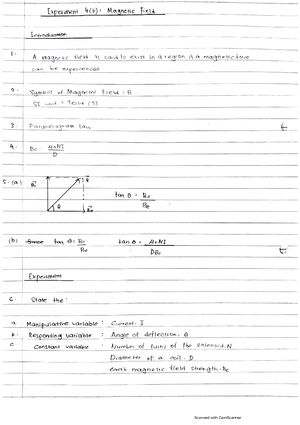 Experiment 4(b): Magnetic Field
Introduction
1. A magnetic field is said to exist in a region if a magnetic force
can be experienced
2. Symbol of Magnetic Field : B
SI unit = Tesla (T)
3. Parallelogram law
4. Bc = μ0NI
D
5.(a)
θ
tan θ = Bc
Be
(b) tan θ = Bc
Be
tan θ = μ0NI
DBe
Experiment
6. State the :
a. Manipulative variable : Current, I
b. Responding variable : Angle of deflection, θ
c. Constant variable : Number of turns of the solenoid, N
Diameter of a coil, D
earth magnetic field strength, Be
Scanned with CamScanner